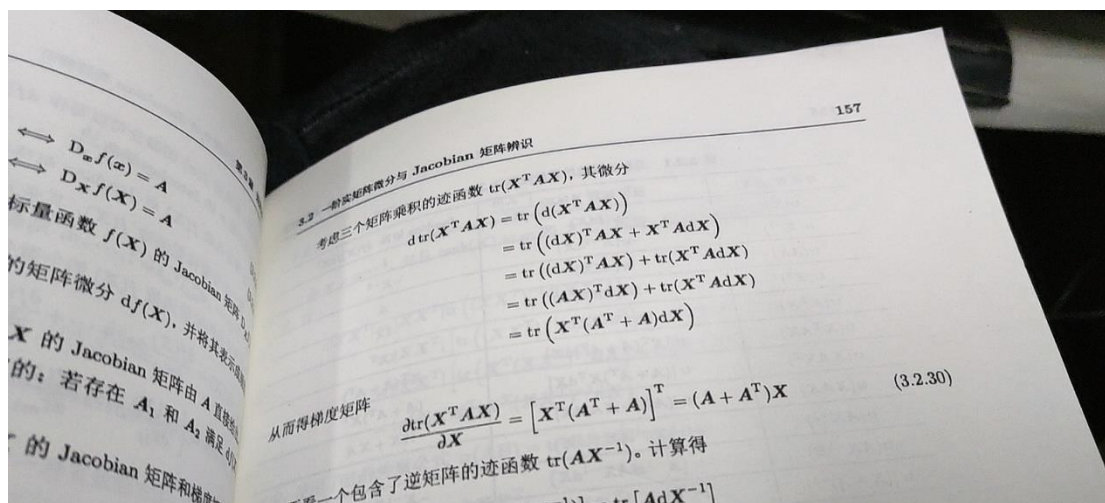 ⟺ Dₓf(x) = A
⟺ D_X f(X) = A
标量函数 f(X) 的 Jacobian 矩阵
的矩阵微分 df(X), 并将其表示成
X 的 Jacobian 矩阵由 A 直接给
的: 若存在 A₁ 和 A₂ 满足
的 Jacobian 矩阵和梯度
157
3.2 一阶实矩阵微分与 Jacobian 矩阵辨识
考虑三个矩阵乘积的迹函数 tr(XᵀAX), 其微分
d tr(XᵀAX) = tr(d(XᵀAX))
= tr((dX)ᵀAX + XᵀAdX)
= tr((dX)ᵀAX) + tr(XᵀAdX)
= tr((AX)ᵀdX) + tr(XᵀAdX)
= tr(Xᵀ(Aᵀ + A)dX)
从而得梯度矩阵
∂tr(XᵀAX)/∂X = [Xᵀ(Aᵀ + A)]ᵀ = (A + Aᵀ)X (3.2.30)
一个包含了逆矩阵的迹函数 tr(AX⁻¹)。计算得
tr[AdX⁻¹]